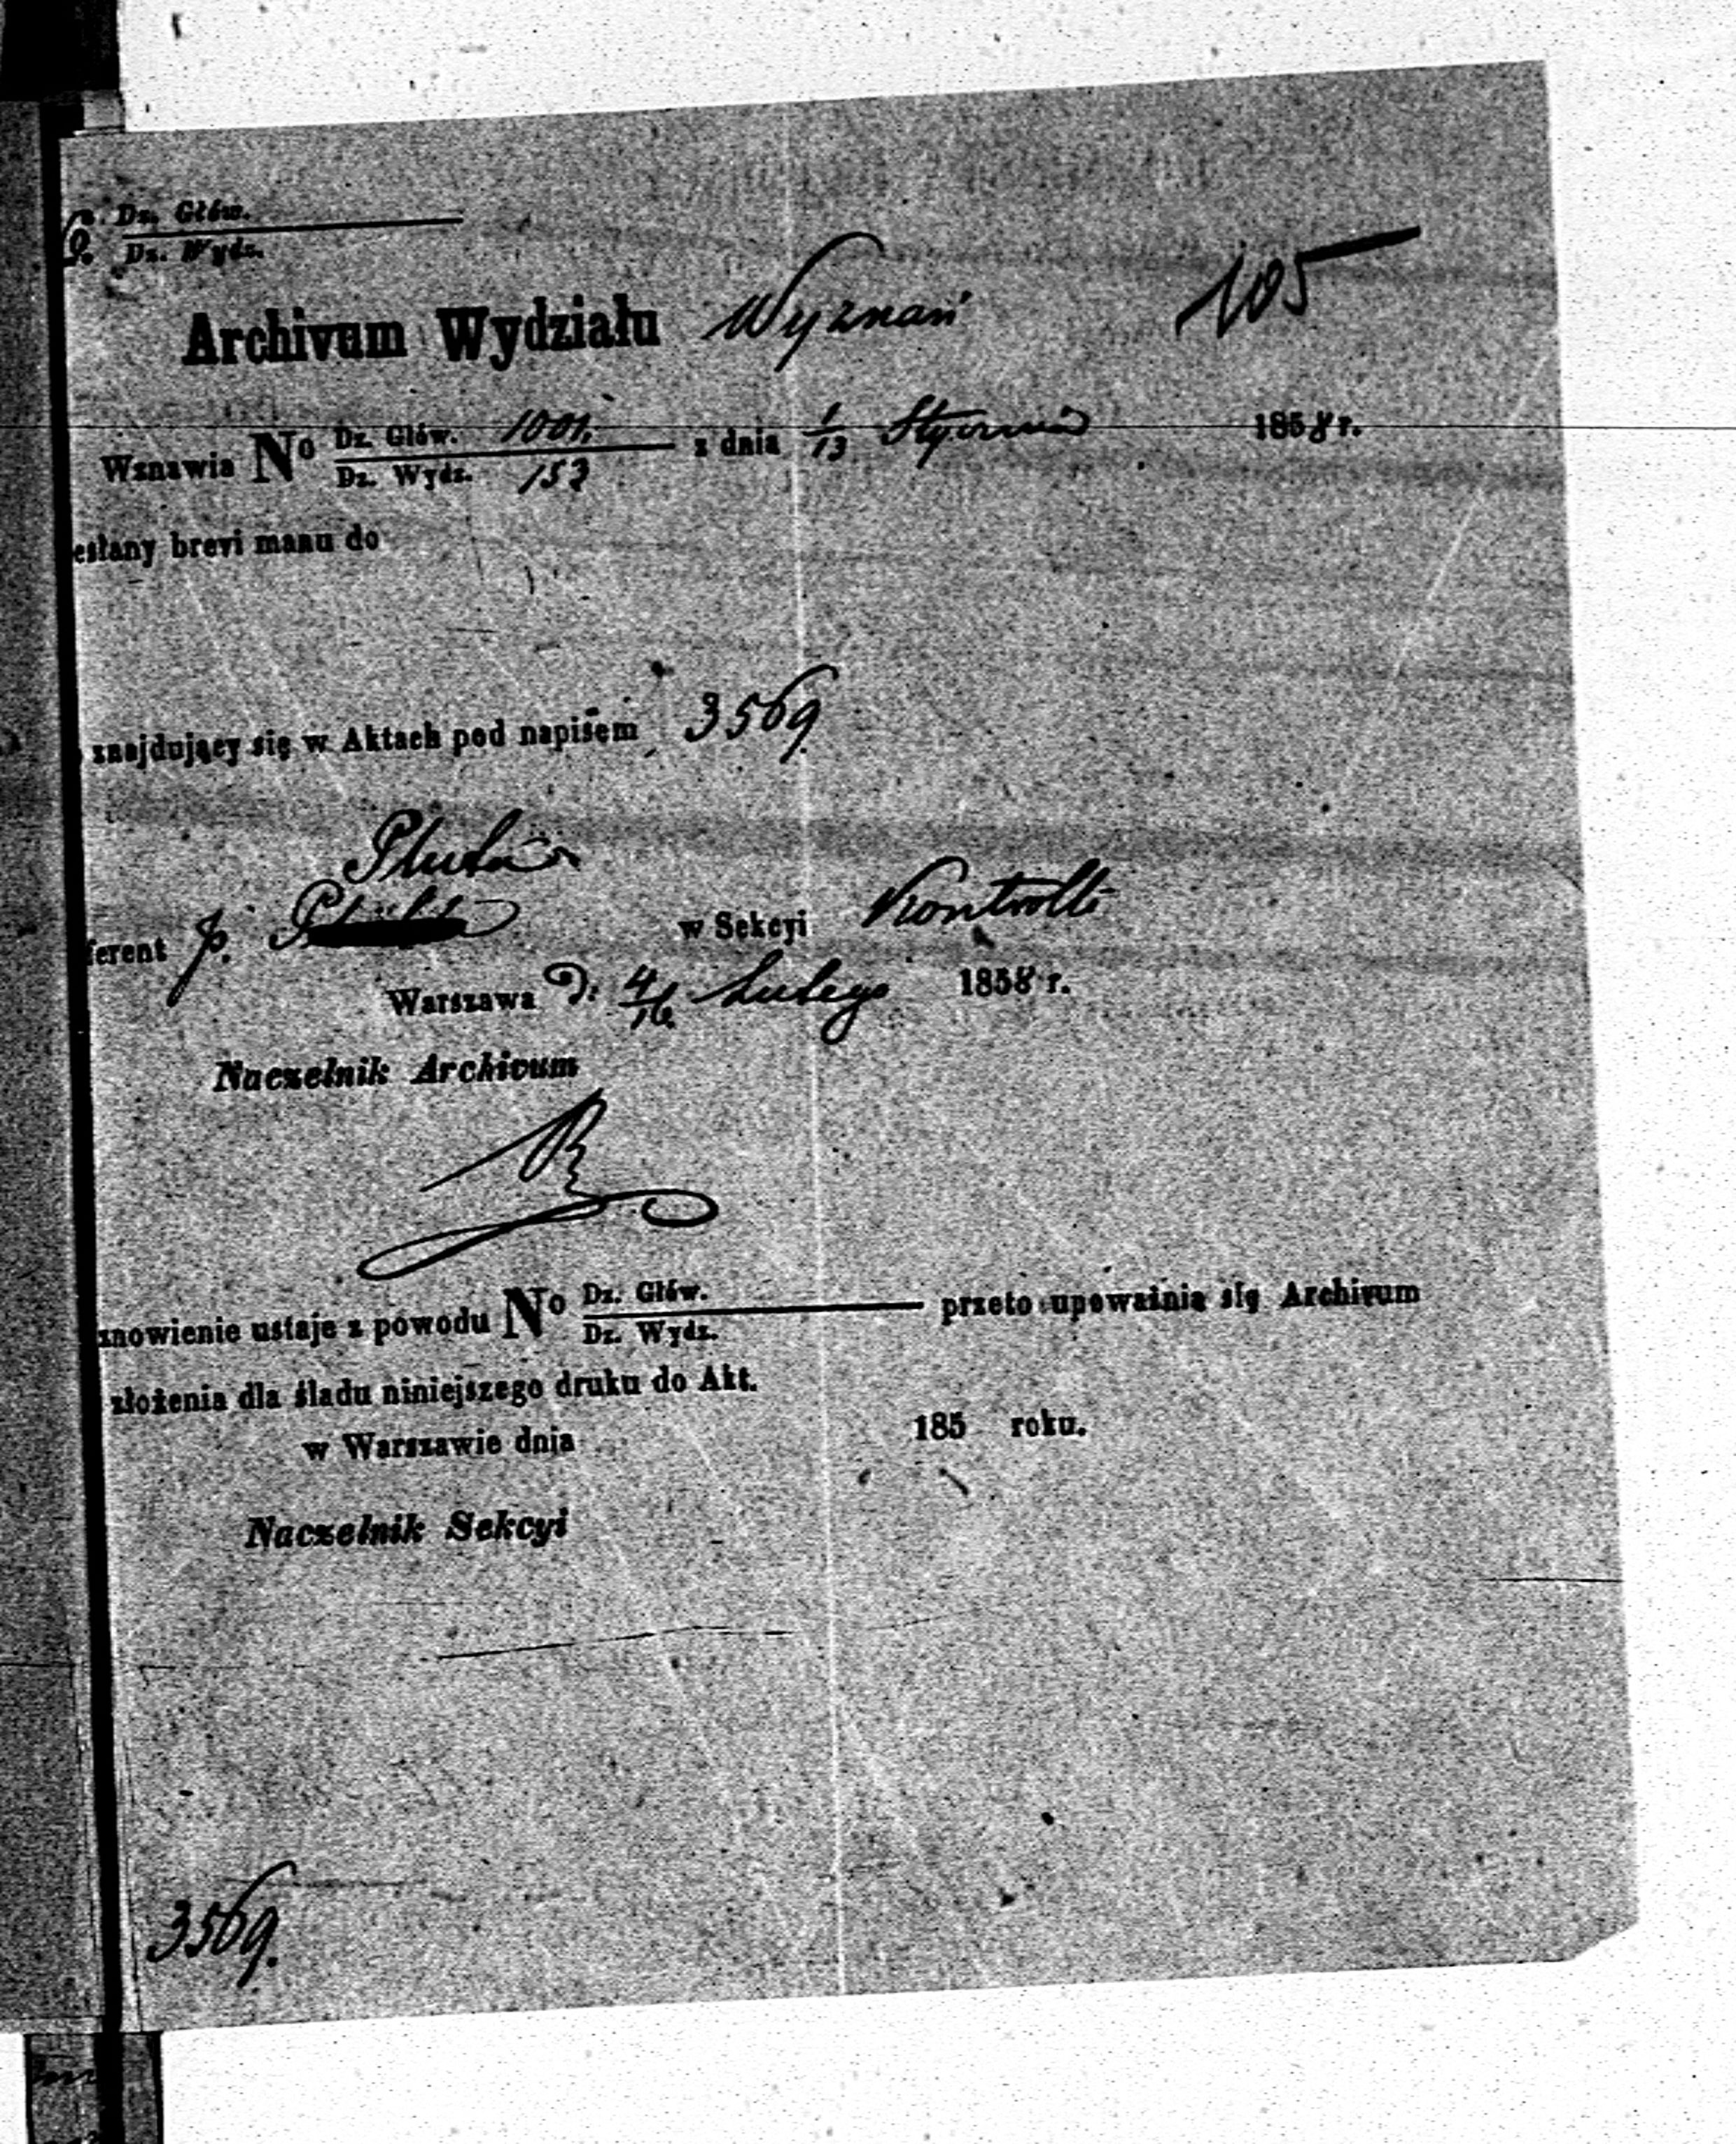 Dz. Głów.
Dz. Wydz.
105
Archivum Wydziału Wyznań
Wznawia No Dz. Głów. 1001. z dnia 1/13 Stycznia 1858 r.
Dz. Wydz. 153
esłany brevi manu do
znajdujący się w Aktach pod napisem 3569.
ferent p. w Sekcyi Kontrolli
Warszawa D: 4/16 Lutego 1858 r.
Naczelnik Archivum
znowienie ustaje z powodu No Dz. Głów. przeto upoważnia się Archivum
Dz. Wydz.
złożenia dla śladu niniejszego druku do Akt.
w Warszawie dnia 185 roku.
Naczelnik Sekcyi
3569.